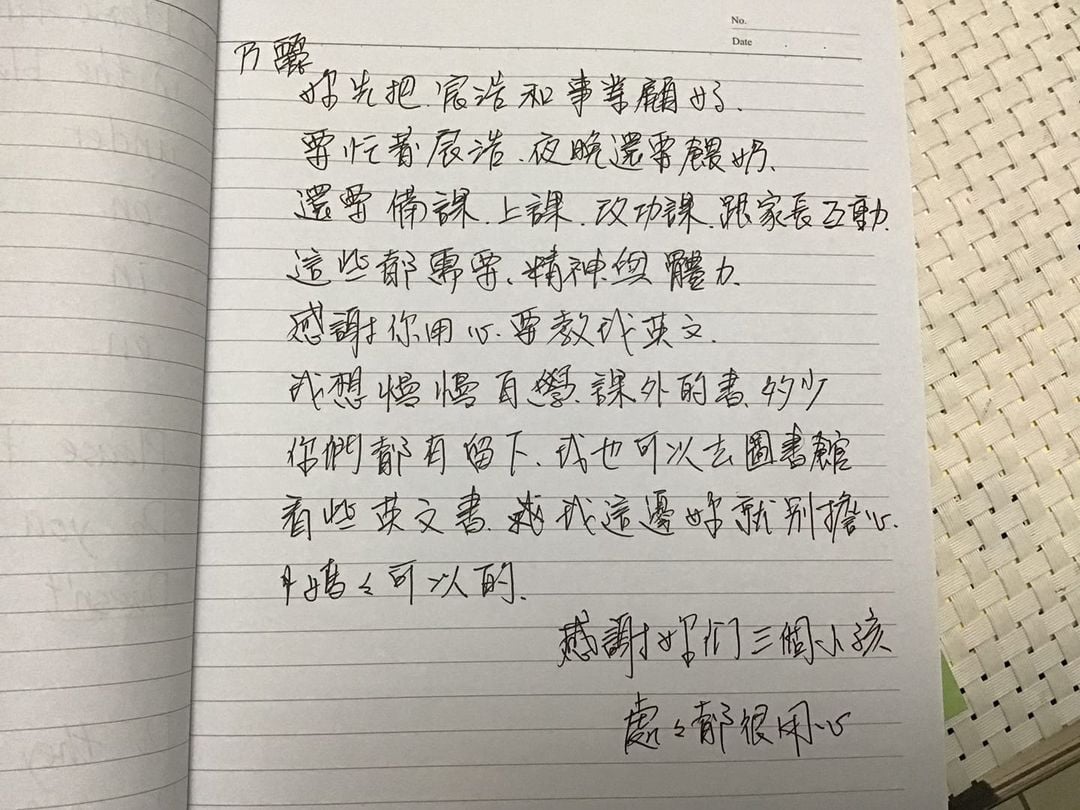 No.
Date
乃麗
妳先把.宸浩和事業顧好.
要忙著宸浩.夜晚還要餵奶.
還要備課.上課.改功課.跟家長互動.
這些都需要.精神與體力.
感謝你用心.要教我英文.
我想慢慢自學.課外的書.多少
你們都有留下.我也可以去圖書館
看些英文書.我這邊妳就別擔心.
媽々可以的.
感謝妳们三個小孩
處々都很用心
under
on
in
on
Please